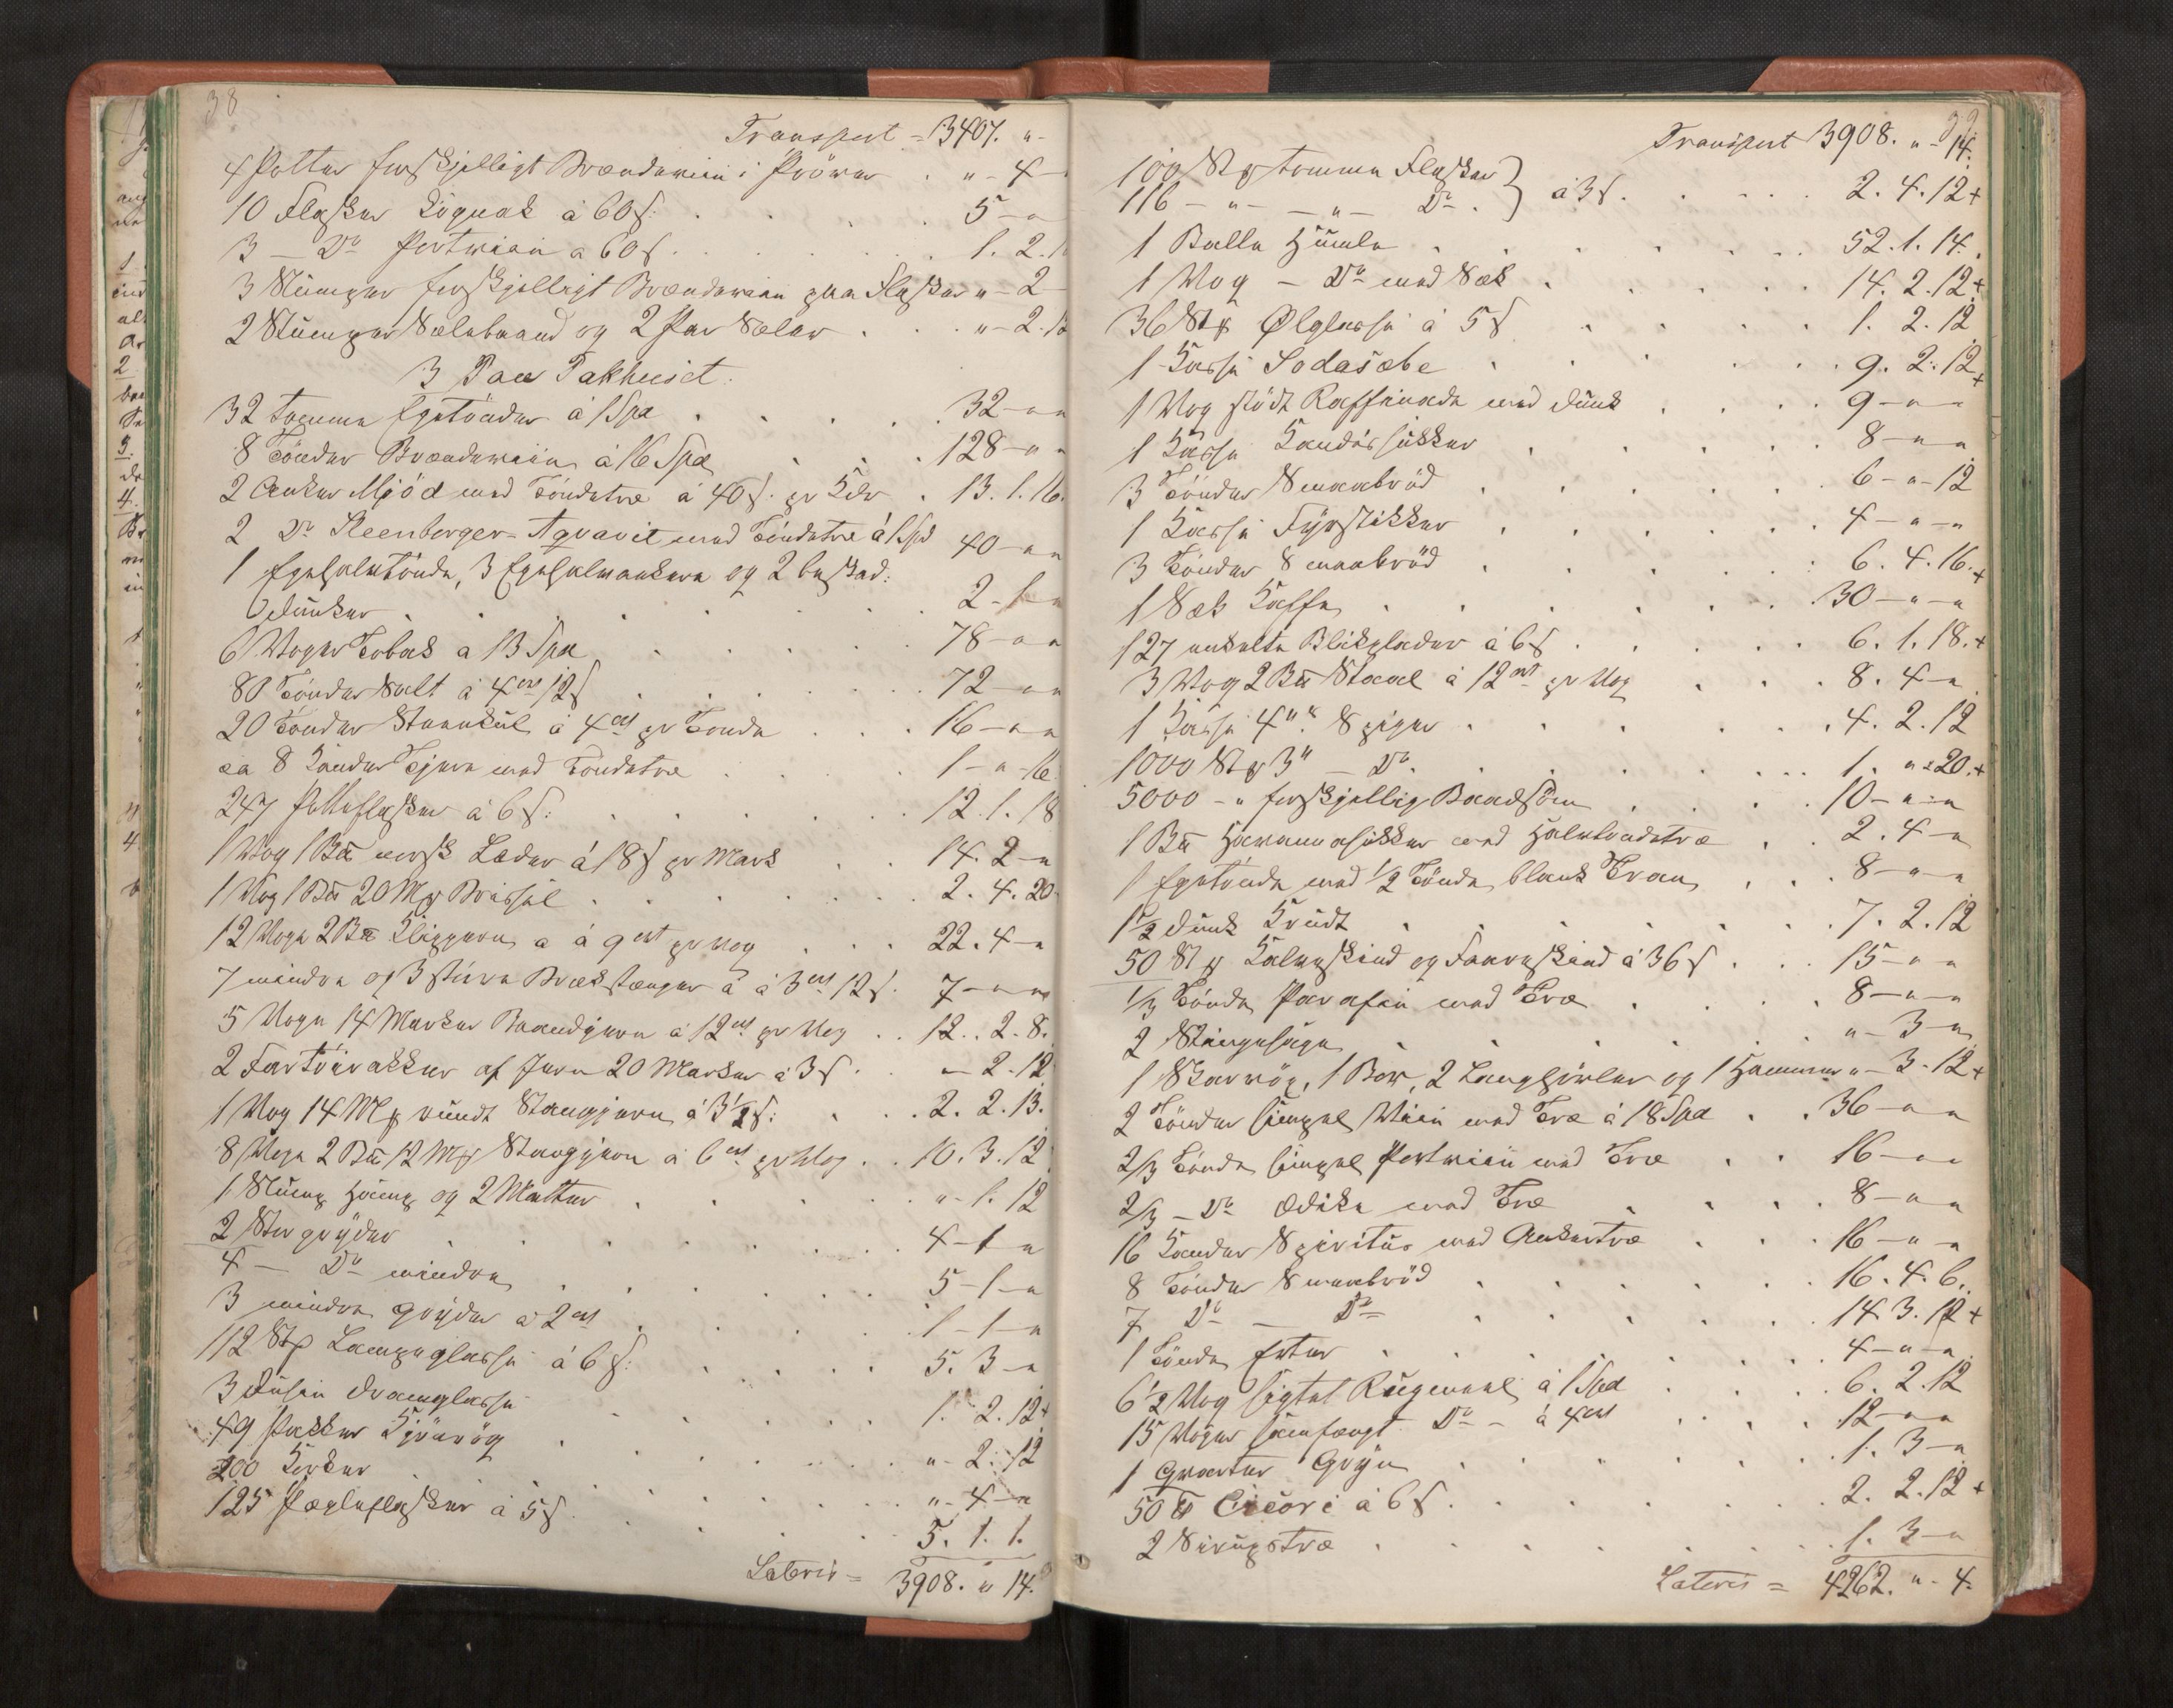 38
Transport = 3407. "-
4 Potter forskjelligt Brændeviin i Pröver . "- 4 -
10 Flasker Coguak à 60 s: . . 5 - "
3 - Do Portviin a 60 s . . . 1. 2. 1
3 Slumper forskjelligt Brændeviin paa Flasker " - 2 -
2 Stumper Selebaand og 2 Par Seler . . . " - 2. 12
3 Paa Pakhuset.
32 tomme Egetönder à 1 Spd . . . 32 - " "
8 Tönder Brændeviin à 16 Spd . . . 128 - " "
2 Anker Mjöd med Töndetræ à 40 s. pr Kde . 13. 1. 16.
2 Do Steenberger-Aqvavit med Töndetræ à 1 Spd 40 - " "
1 Egehalvtönde, 3 Egehalvankere og 2 beskad:
Dunker . . . 2 - 1 - "
6 Voger Tobak a 13 Spd . . . 78 - " "
80 Tönder Salt à 4 ort 12 s . . . 72 - " "
20 Tönder Steenkul à 4 ort pr Tönde . . . 16 - " "
ca 8 Kander Tjære med Töndetræ . . . 1 - " - 16
247 Potteflasker à 6 s: . . . 12. 1. 18
1 Vog 1 B℔ norsk Læder à 18 s pr Mark . . 14. 2 - "
1 Vog 1 B℔ 20 Mp Brissel . . . 2. 4. 20
12 Voger 2 B℔ Klipjern a à 9 ort pr Vog . . . 22. 4 - "
7 mindre og 3 större Brækstænger à à 3 ort 12 s. 7 - " - "
5 Voger 14 Marker Baandjern à 12 ort pr Vog . . 12. . 2. 8.
2 Fartöirakker af Jern 20 Marker à 3 s . . " - 2. 12
1 Vog 14 Mp rundt Stangjern à 3½ s: . . . 2. 2. 13.
8 Voger 2 B℔ 12 Mp Stangjern à 6 ort pr Vog . . 10. 3. 12
1 Slump Hamp og 2 Matter . . . " - 1. 12
2 Stp gryder . . . 4 - 1 - "
4 - Do mindre . . . 5 - 1 - "
3 mindre gryder a 2 ort . . . 1 - 1 - "
112 Stp Lampeglasse à 6 s: . . . 5. 3 - "
3 Dusin Dramglasse . . . 1. 2. 12 +
49 Pakker Kjönrög . . . " - 2. 12
200 Korker . . . " - 4 - "
125 Pægleflasker à 5 s . . . 5. 1. 1.
Lateris = 3908. " 14.
39.
Transport 3908. " - 14.
100 Stp tomme Flasker } à 3 s . . . 2. 4. 12 +
116 - " - - " - Do . }
1 Balle Humle . . . 52. 1. 14.
1 Vog - Do med Sæk . . . 14. 2. 12 +
36 Stp Ölglasse à 5 s . . . 1. 2. 12
1 Kasse Sodasæbe . . . 9. 2. 12 +
1 Vog stödt Raffinade med Dunk . . . 9 - " - "
1 Kasse Kandissukker . . . 8 - " "
3 Tönder Smaabröd . . . 6 - " - 12
1 Kasse Fyrstikker . . . 4 - " - "
3 Tönder Smaabröd . . . 6. 4. 16. +
1 Sæk Kaffe . . . 30 - " - "
127 enkelte Blikplader à 6 s . . . 6. 1. 18. +
3 Vog 2 B℔ Staal à 12 ort pr Vog . . . 8. 4 - "
1 Kasse 4" Spiger . . . 4. 2. 12
1000 Stp 3" - Do . . . 1. " - 20. +
5000 - " forskjellig Baadsöm . . . 10 - " - "
1 B℔ Havannasukker med Halvtöndetræ . . 2. 4 - "
1 Egetönde med ½ Tönde blank Tran . . . 8 - " - "
1½ Dunk Krudt . . . 7. 2. 12
50 Stp Kalveskind og Faareskind à 36 s . . . 15 - " "
1/3 Tönde Parafin med Træ . . . 8 - " - "
2 Stingsage . . . " - 3 - "
1 Skarvög, 1 Bor, 2 Langhövler og 1 Hammer " - 3. 12 +
2 Tönder simpel Viin med Træ à 18 Spd . . 36 - " "
2/3 Tönde simpel Portviin med Træ . . 16 - " "
2/3 - Do Edike med Træ . . . 8 - " "
16 Kander Spiritus med Ankertræ . . . 16 - " "
8 Tönder Smaabröd . . . 16. 4. 6.
7 Do - Do . . . 14. 3. 12 +
1 Tönde Erter . . . 4 - " - "
6½ Vog sigtet Rugmeel à 1 Spd . . . 6. 2. 12
15 Voger samfængt Do - à 4 ort . . . 12 - " "
1 Qvarter Gryn . . . 1. 3 - "
50 ℔ Cicori à 6 s . . . 2. 2. 12 +
2 Sirupstræ . . . 1. 3 - "
Lateris = 4262. " - 4.